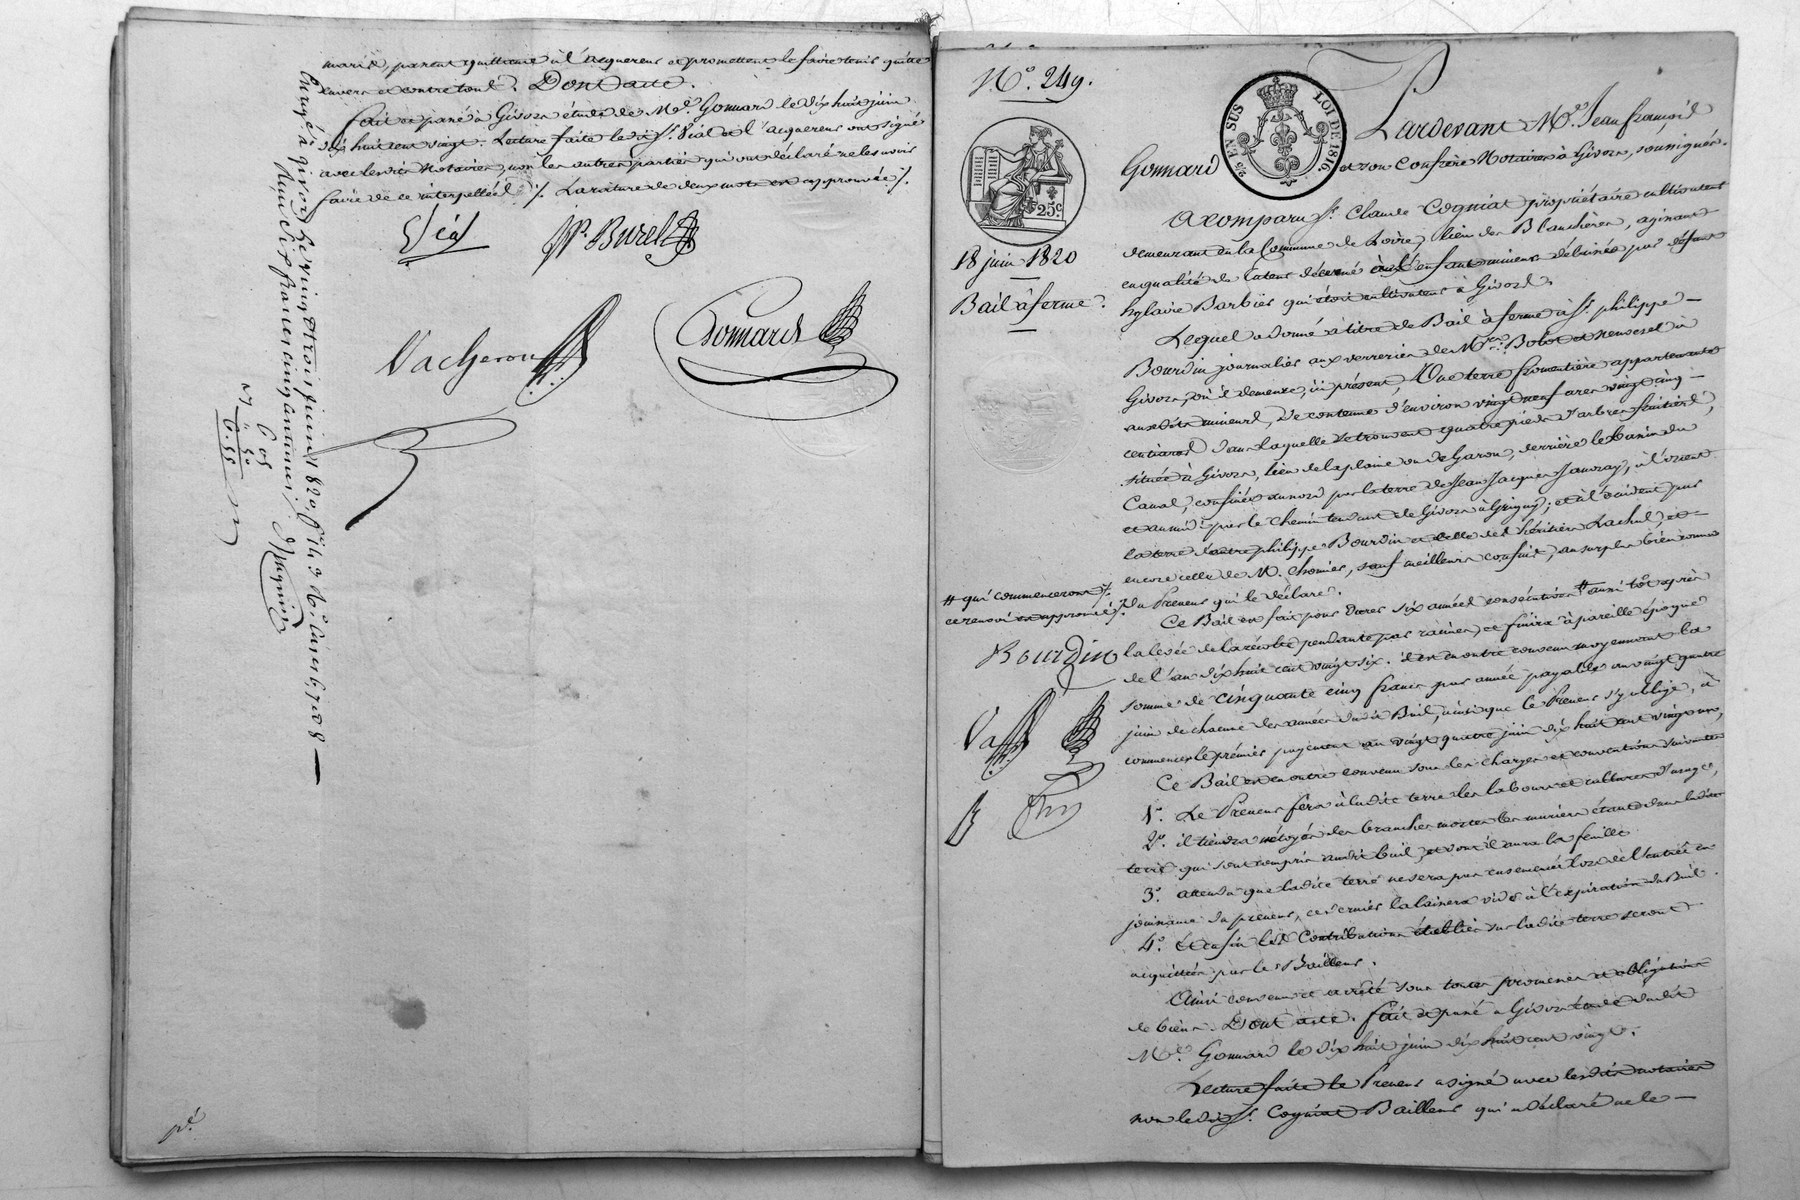 mariés, passent quittance à l'acquereur et promettent le faire tenir quitte
envers et contre tous. Dont acte.
fait et passé à Givors étude de Me. Gonnard le dix huit juin
dix huit cent vingt. Lecture faite le dit Sr. Vial et l'acquereur ont signé
avec lesdits Notaires, non les autres parties qui ont déclaré ne le savoir
faire de ce interpellés ./. La rature de deux mots est approuvée ./.
Vial
JP. Burel
Vacheron
Gonnard
Enregé à Givors le vingt trois juin 1820, fo. 113 Vo. Cases 6 7 et 8
Reçu six francs cinquante cinq centimes
6 05
" 50
6.55
No. 249.
25 c.
18 juin 1820
Bail à ferme.
2e EN SUS
LOI DE 1816
Pardevant Me. Jean françois
Gonnard et son confrère Notaires à Givors, soussignés.
A comparu Sr. Claude Cogniat propriétaire cultivateur
demeurant en la Commune de Loire, lieu des Blanchères, agissant
en qualité de tuteur décerné aux enfans mineurs délaissés par défunt
hylaire Barbier qui étoit cultivateur à Givors.
Lequel a donné à titre de Bail à ferme à Sr. philippe
Bourdin journalier aux verreries de Mrs. Bolot et neuvesel à
Givors, où il demeure, ici présent, Une terre fromentière appartenante
auxdits mineurs, de contenue d'environ vingt neuf ares vingt cinq
centiares dans laquelle se trouvent quatre pieds d'arbres fruitiers,
située à Givors, lieu de la plaine ou de Garon, derrière le bassin du
Canal, confinée au nord par la terre de Jean Jacques Jauzay, à l'orient
et au midi par le chemin tendant de Givors à Grigny; et à l'occident par
la terre d'autre philippe Bourdin et celle des héritiers Lachul, et
encore celle de M. chomier, sauf meilleurs confins, au surplus bien connue
du Preneur qui le déclare.
Ce Bail est fait pour durer six années consécutives # aussitôt après
la levée de la récolte pendante par racines, et finira à pareille époque
de l'an dix huit cent vingt six. il est en outre convenu moyennant la
somme de cinquante cinq francs par année payable au vingt quatre
juin de chacune des années dudit Bail, ainsi que le Preneur s'y oblige, à
commencer le prémier payement au vingt quatre juin dix huit cent vingt un,
Ce Bail est en outre convenu sous les charges et conventions suivantes
1o. Le Preneur fera à ladite terre les labours et cultures d'usage,
2o. il tiendra nétoyés des branches mortes les muriers étant dans ladite
terre qui sont compris audit bail, et dont il aura la feuille
3o. attendu que ladite terre ne sera pas ensemencée lors de l'entrée en
jouissance du preneur, ce dernier la laissera vide à l'expiration du Bail.
4o. Et enfin les Contributions établies sur ladite terre seront
acquittées par le Bailleur.
Ainsi convenu et arrêté sous toutes promesses et obligations
de biens. Dont acte. fait et passé à Givors étude dudit
Me. Gonnard le dix huit juin dix huit cent vingt.
Lecture faite le Preneur a signé avec lesdits notaires
non ledit Sr. Cogniat Bailleur qui a déclaré ne le
# qui commenceront ./.
ce renvoi est approuvé ./.
Bourdin
Va
B